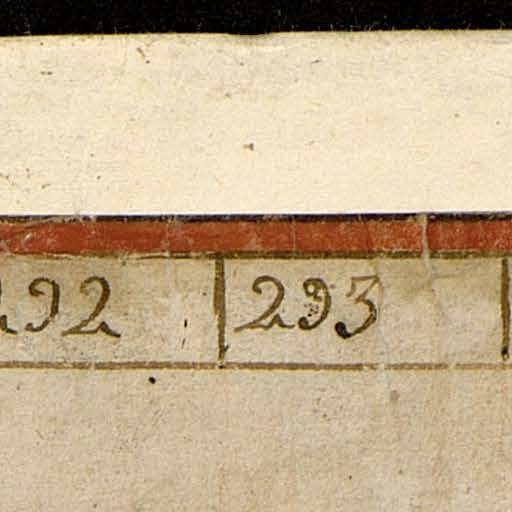 292 293